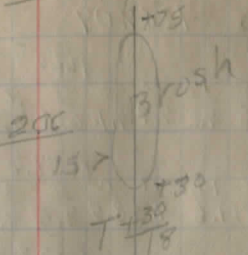 +75
Brush
206
15 >
+30
T +30
18